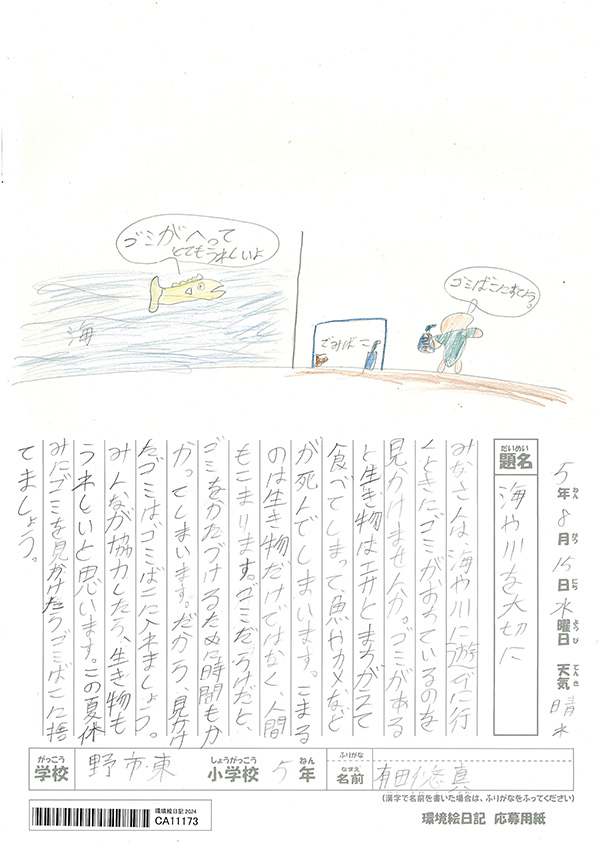 ゴミがへって
とてもうれしいよ
海
ごみばこ
ゴミばこにすてよう。
5年8月15日水曜日 天気晴れ
ねん がつ にち ようび てんき
だいめい
題名
海や川を大切に
みなさんは、海や川に遊びに行
くときにゴミがおちているのを
見かけませんか。ゴミがある
と生き物はエサとまちがえて
食べてしまって、魚やカメなど
が死んでしまいます。こまる
のは生き物だけではなく、人間
もこまります。ゴミだらけだと、
ゴミをかたづけるために時間もか
かってしまいます。だから、見かけ
たゴミはゴミばこに入れましょう。
みんなが協力したら、生き物も
うれしいと思います。この夏休
みにゴミを見かけたらゴミばこに捨
てましょう。
がっこう
学校
野市東
しょうがっこう
小学校
5
ねん
年
ふりがな
なまえ
名前
有田悠真
(漢字で名前を書いた場合は、ふりがなをふってください)
環境絵日記 2024
CA11173
環境絵日記 応募用紙